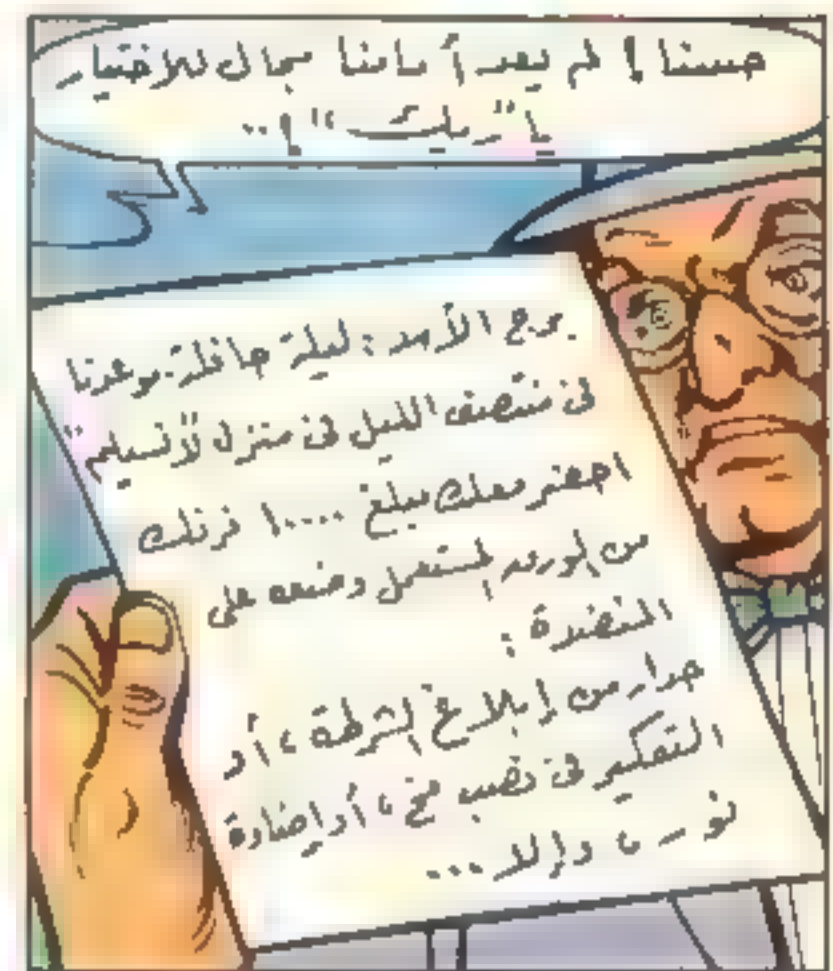 حسنا ! لم يعد أمامنا مجال للاختيار
يا "ريك" ! ..
برج الأسد : ليلة حافلة. موعدنا
فى منتصف الليل فى منزل "أنسيلم"
احضر معك مبلغ ١٠٠٠٠ فرنك
من الورق المستعمل وضعه على
المنضدة :
حذار من إبلاغ الشرطة ، أو
التفكير فى نصب فخ ، أو إضاءة
نور ، وإلا ...